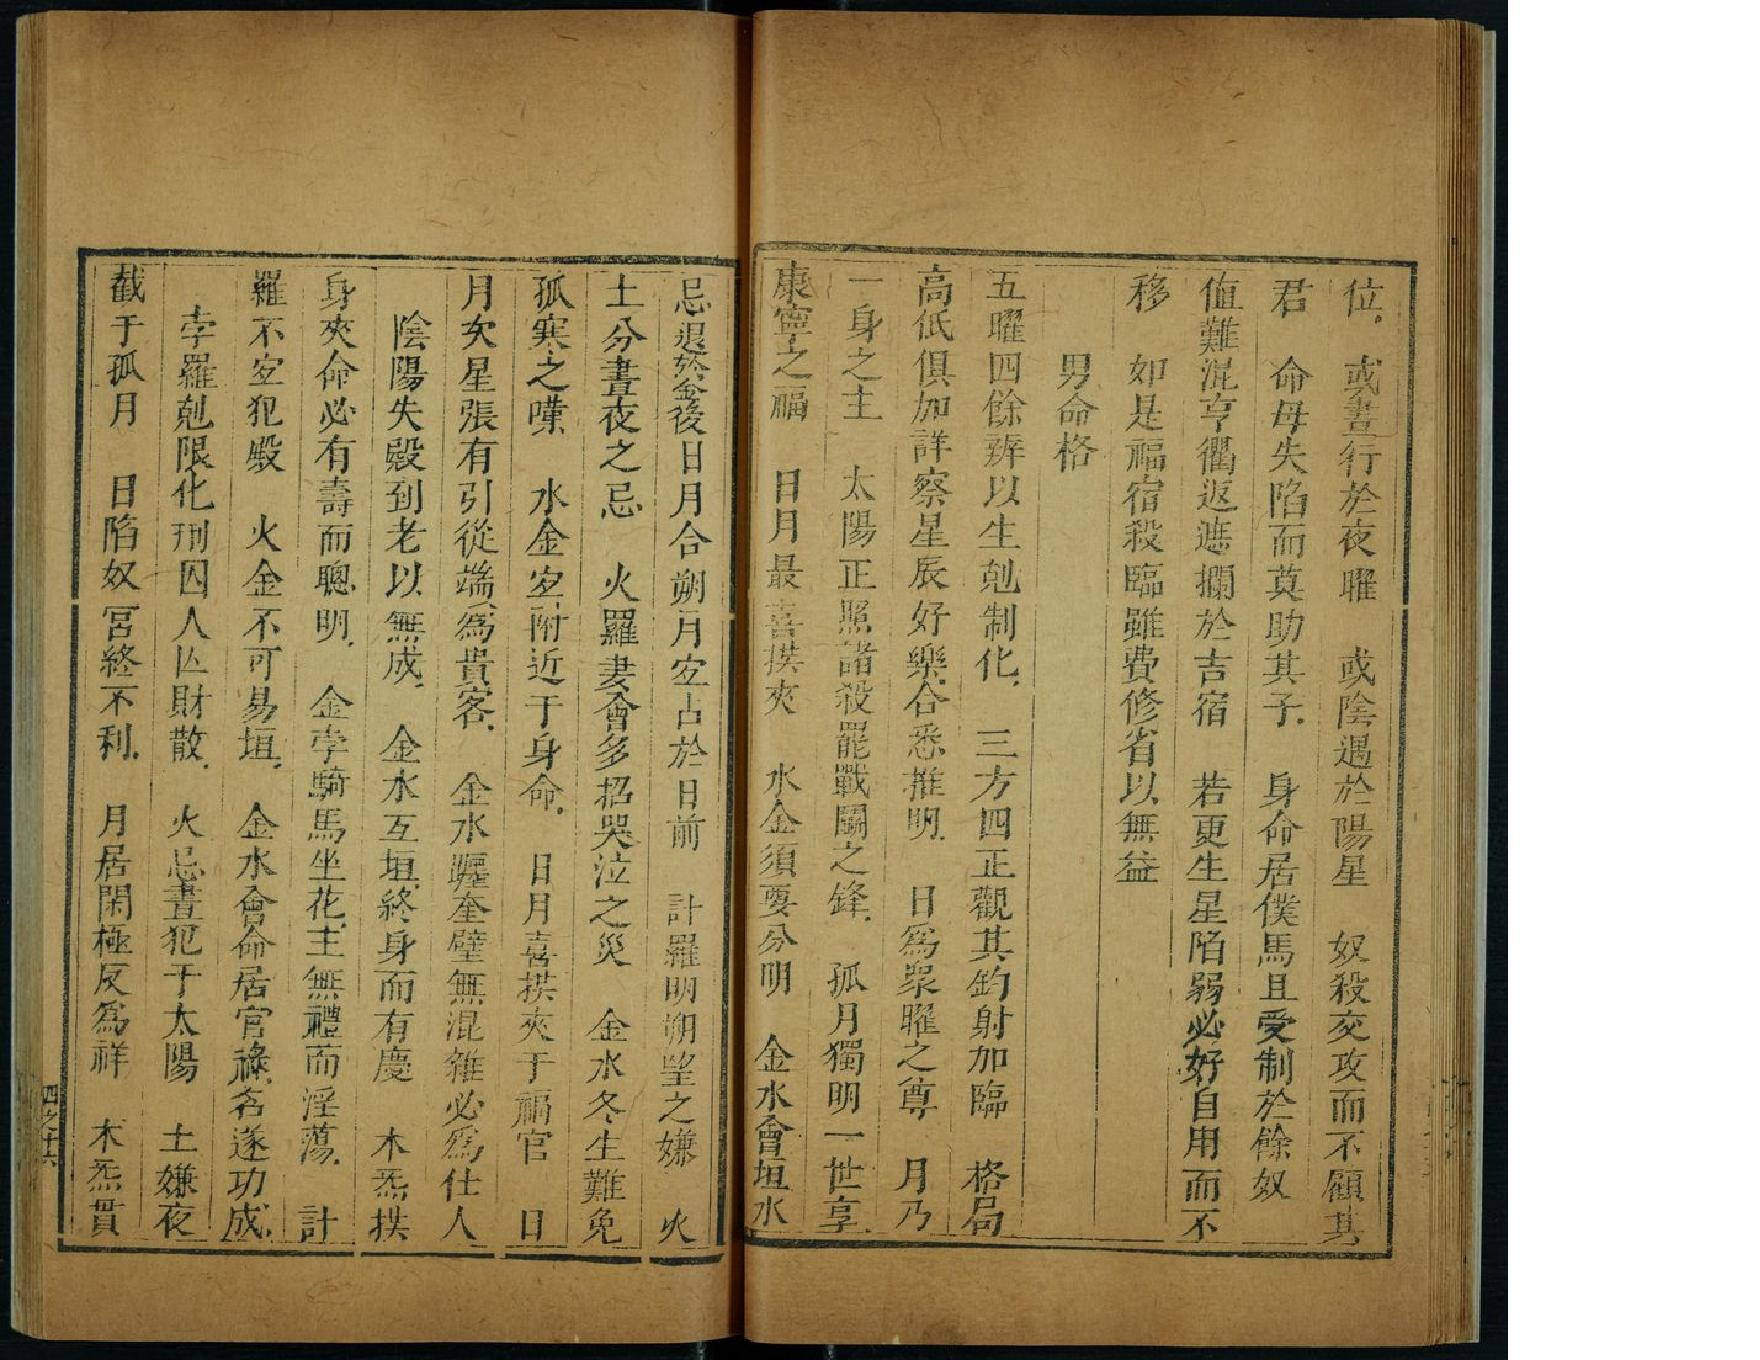 位 或晝行於夜曜 或陰遇於陽星 奴殺交攻而不顧其
君 命母失陷而莫助其子 身命居僕馬且受制於餘奴
值難混亨衢返遮攔於吉宿 若更生星陷弱必好自用而不
移 如是福宿殺臨雖費修省以無益
男命格
五曜四餘辨以生剋制化 三方四正觀其鈞射加臨 格局
高低俱加詳察星辰好樂合悉推明 日爲衆曜之尊 月乃
一身之主 太陽正照諸殺罷戰鬭之鋒 孤月獨明一世享
康寧之福 日月最喜拱夾 水金須要分明 金水會垣水
忌退於金後日月合朔月宐占於日前 計羅明朔望之嫌 火
土分晝夜之忌 火羅妻會多招哭泣之災 金水冬生難免
孤寒之嘆 水金宐附近于身命 日月喜拱夾于福官 日
月欠星張有引從端爲貴客 金水躔奎壁無混雜必爲仕人
陰陽失殿到老以無成 金水互垣終身而有慶 木炁拱
身夾命必有壽而聰明 金孛騎馬坐花主無禮而淫蕩 計
羅不宐犯殿 火金不可易垣 金水會命居官祿名遂功成
孛羅剋限化刑囚人亾財散 火忌晝犯于太陽 土嫌夜
截于孤月 日陷奴宮終不利 月居閑極反爲祥 木炁貫
四之廿六